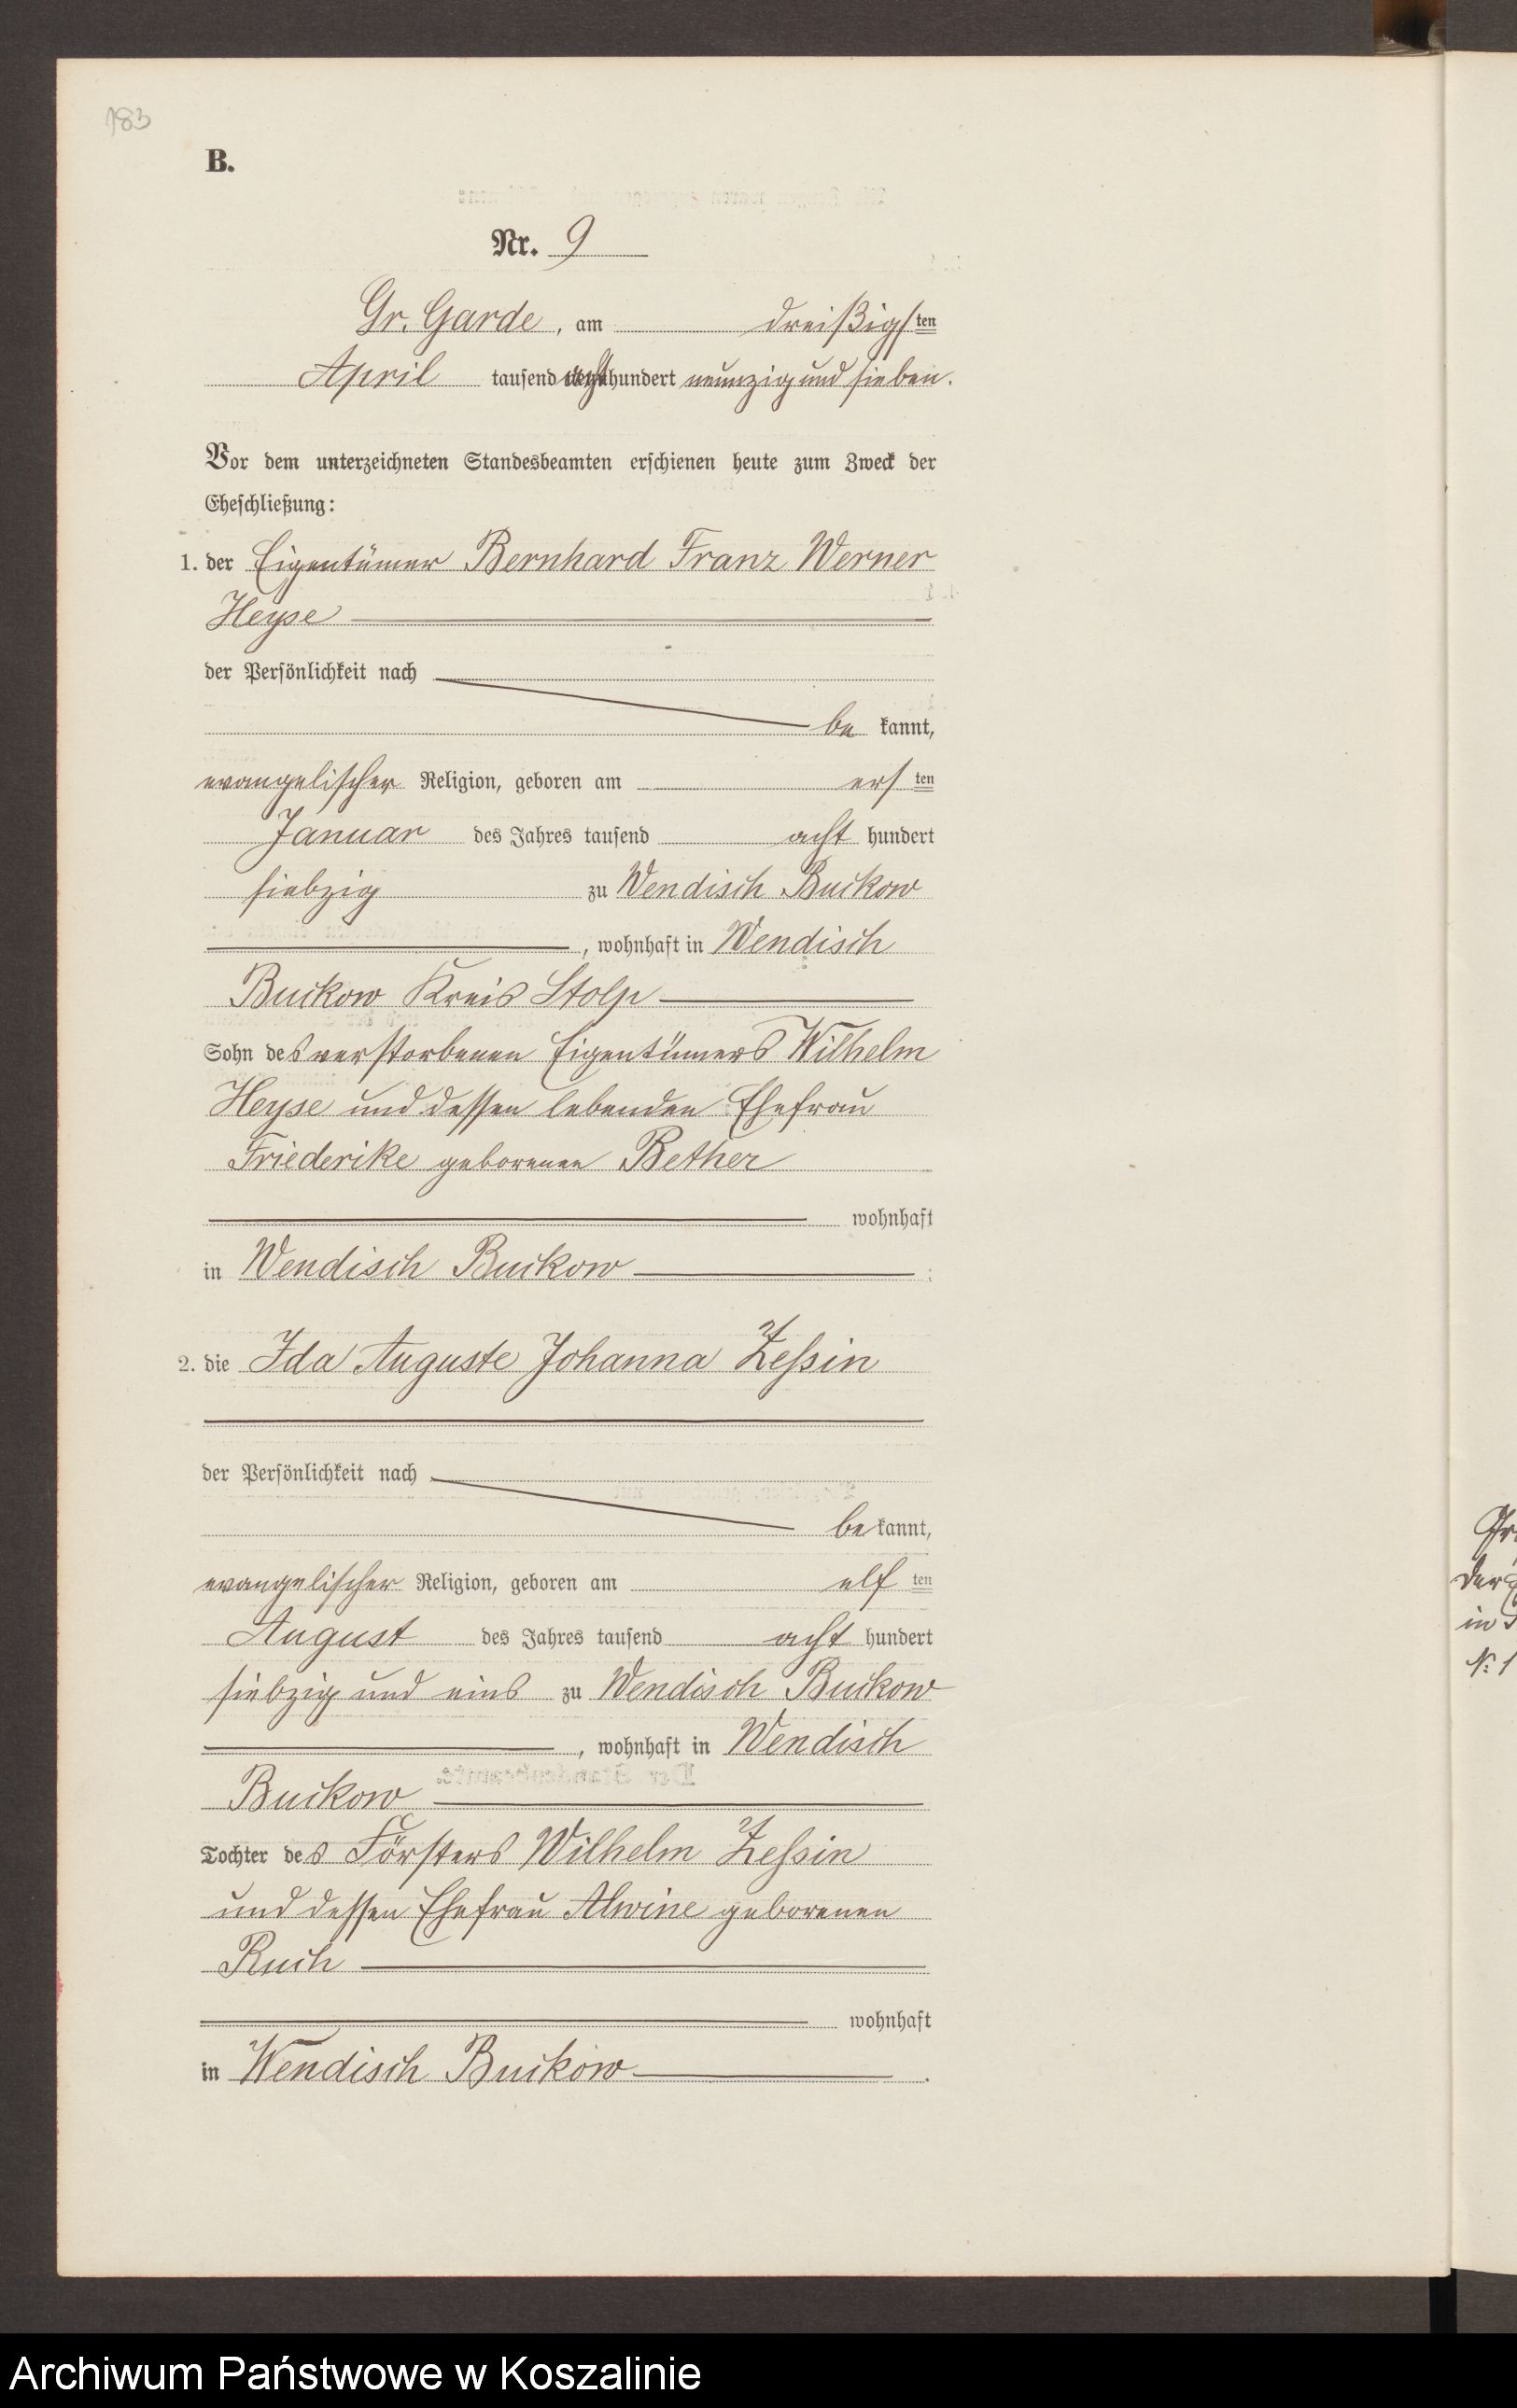 183
B.
Nr. 9
Gr. Garde, am dreißigsten
April tausend acht hundert neunzig und sieben.
Vor dem unterzeichneten Standesbeamten erschienen heute zum Zweck der
Eheschließung:
1. der Eigentümer Bernhard Franz Werner
Heyse
der Persönlichkeit nach
be kannt,
evangelischer Religion, geboren am ersten
Januar des Jahres tausend acht hundert
siebzig zu Wendisch Buckow
, wohnhaft in Wendisch
Buckow Kreis Stolp
Sohn des verstorbenen Eigentümers Wilhelm
Heyse und dessen lebenden Ehefrau
Friederike geborenen Bether
wohnhaft
in Wendisch Buckow :
2. die Ida Auguste Johanna Zessin
der Persönlichkeit nach
be kannt,
evangelischer Religion, geboren am elf ten
August des Jahres tausend acht hundert
siebzig und eins zu Wendisch Buckow
, wohnhaft in Wendisch
Buckow
Tochter des Försters Wilhelm Zessin
und dessen Ehefrau Alwine geborenen
Ruch
wohnhaft
in Wendisch Buckow .
der
in
No 1
Archiwum Państwowe w Koszalinie